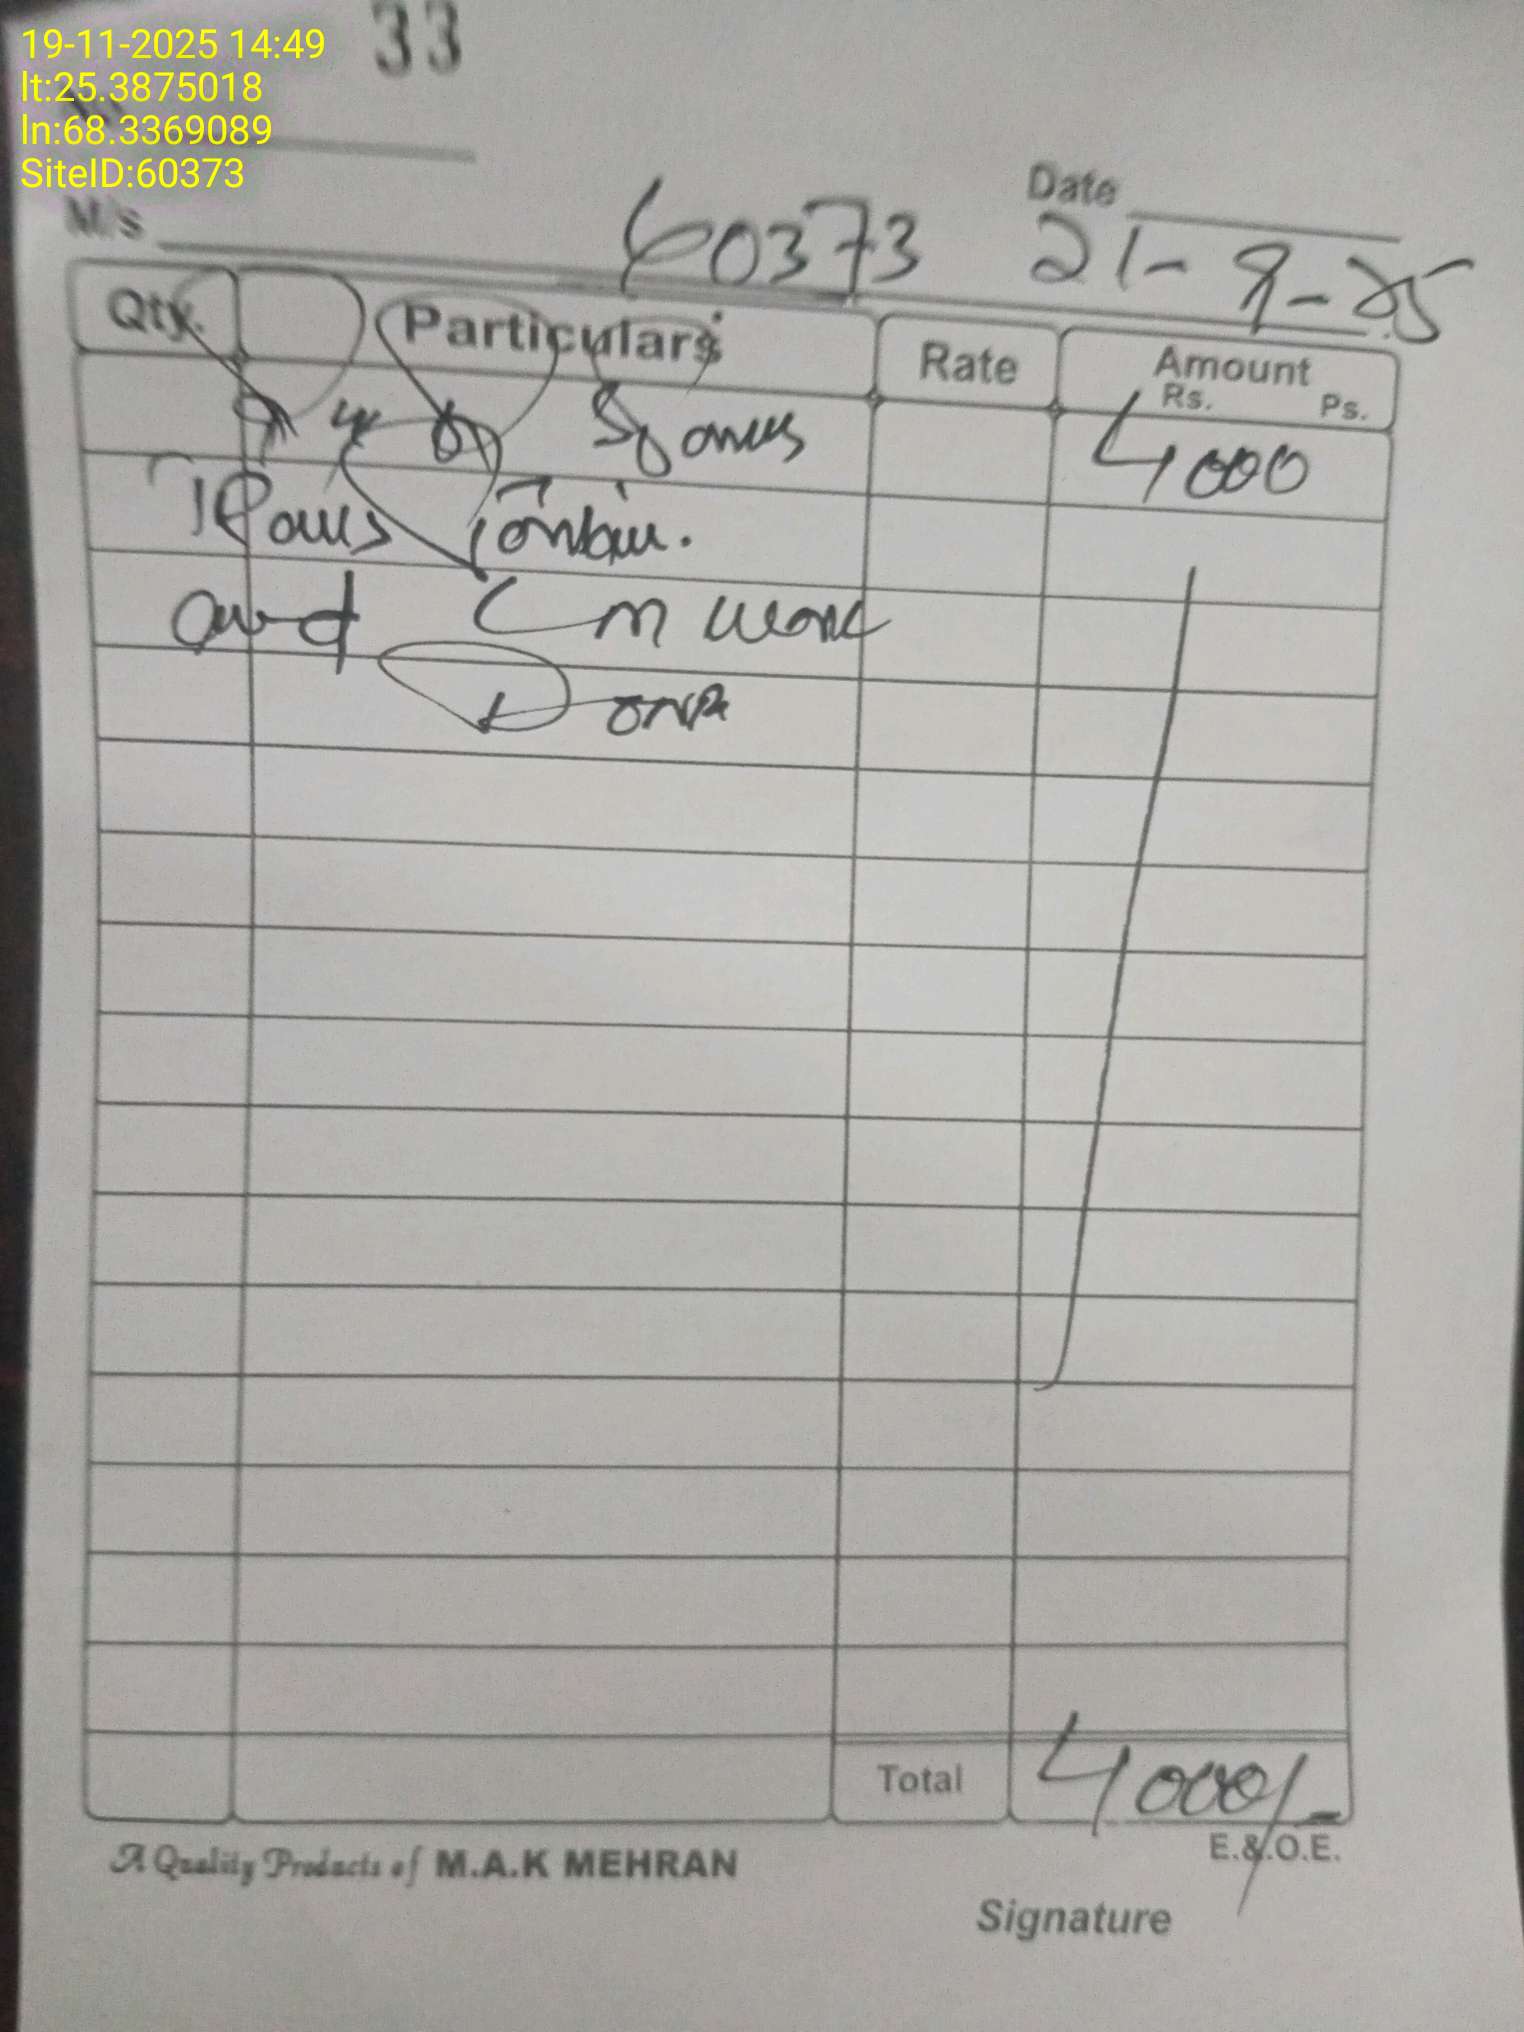 19-11-2025 14:49
33
lt:25.3875018
ln:68.3369089
SiteID:60373
Date
M/s
60373 21-9-25
Qty. Particulars Rate Amount
Rs. Ps.
4000
and work
Done
Total 4000/-
E.&.O.E.
A Quality Products of M.A.K MEHRAN
Signature